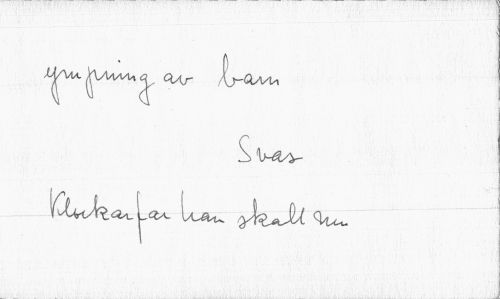 ympning av barn
Svar
Klockarfar han skall